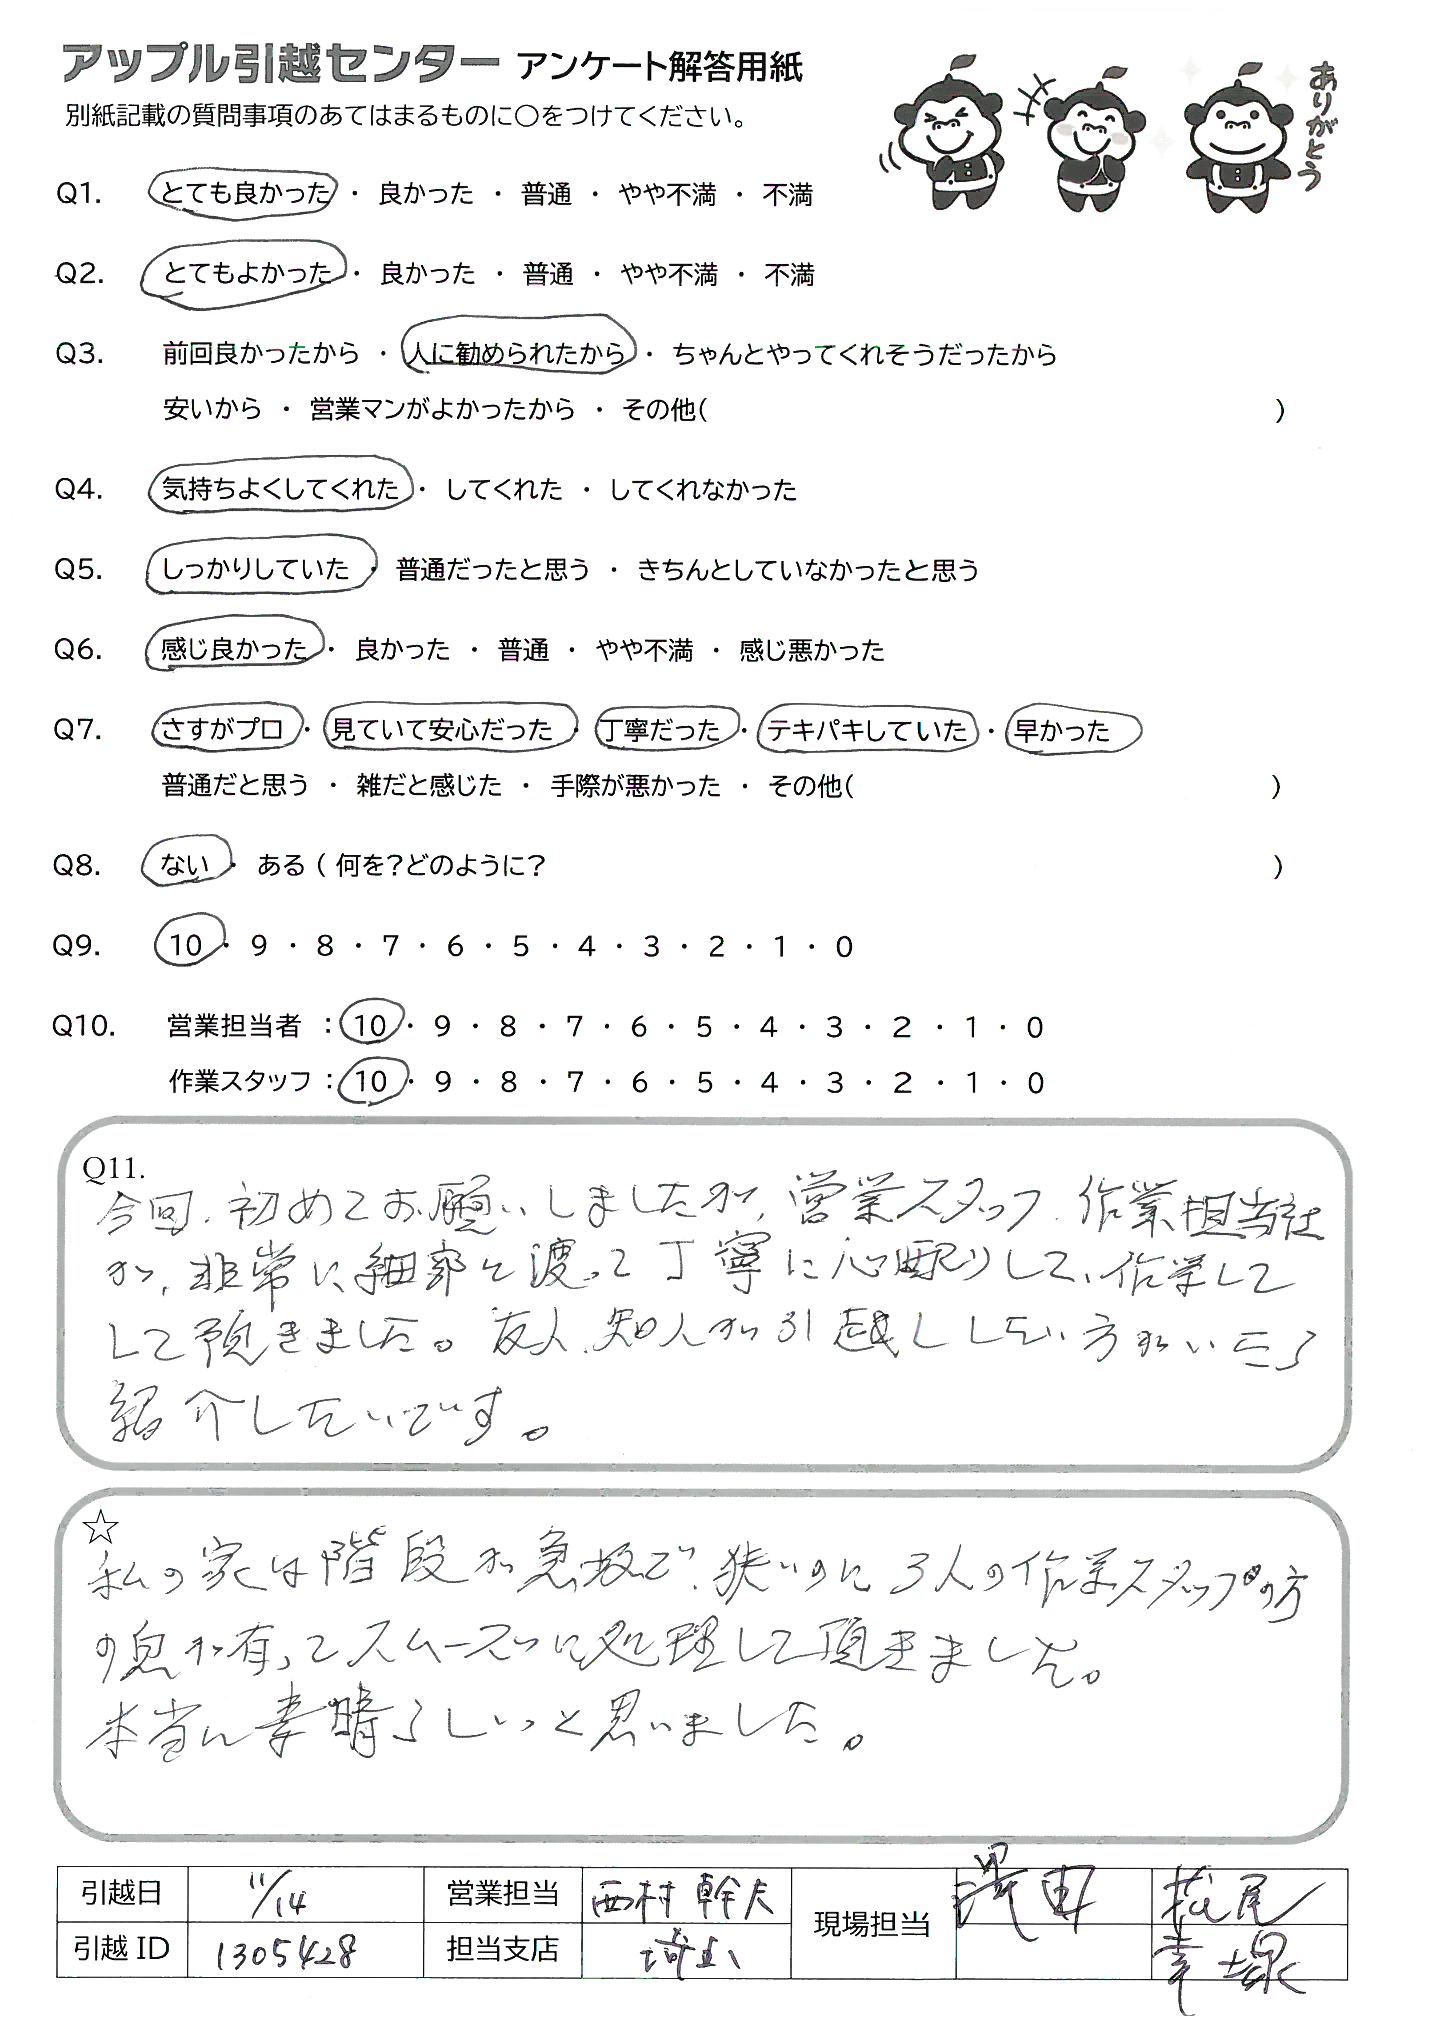 アップル引越センター アンケート解答用紙
別紙記載の質問事項のあてはまるものに○をつけてください。
ありがとう
Q1. とても良かった ・ 良かった ・ 普通 ・ やや不満 ・ 不満
Q2. とてもよかった ・ 良かった ・ 普通 ・ やや不満 ・ 不満
Q3. 前回良かったから ・ 人に勧められたから ・ ちゃんとやってくれそうだったから
安いから ・ 営業マンがよかったから ・ その他( )
Q4. 気持ちよくしてくれた ・ してくれた ・ してくれなかった
Q5. しっかりしていた ・ 普通だったと思う ・ きちんとしていなかったと思う
Q6. 感じ良かった ・ 良かった ・ 普通 ・ やや不満 ・ 感じ悪かった
Q7. さすがプロ ・ 見ていて安心だった ・ 丁寧だった ・ テキパキしていた ・ 早かった
普通だと思う ・ 雑だと感じた ・ 手際が悪かった ・ その他( )
Q8. ない ・ ある ( 何を?どのように? )
Q9. 10 ・ 9 ・ 8 ・ 7 ・ 6 ・ 5 ・ 4 ・ 3 ・ 2 ・ 1 ・ 0
Q10. 営業担当者 : 10 ・ 9 ・ 8 ・ 7 ・ 6 ・ 5 ・ 4 ・ 3 ・ 2 ・ 1 ・ 0
作業スタッフ : 10 ・ 9 ・ 8 ・ 7 ・ 6 ・ 5 ・ 4 ・ 3 ・ 2 ・ 1 ・ 0
Q11.
今回、初めてお願いしましたが、営業スタッフ、作業担当社
が、非常に細部を渡って丁寧に心配りして、作業して
して頂きました。友人、知人が引越ししたい方がいたら
紹介したいです。
☆
私の家は階段が急坂で、狭いのに3人の作業スタッフの方
の息が有ってスムーズに処理して頂きました。
本当に素晴らしいっと思いました。
引越日 11/14 営業担当 西村幹夫 現場担当 松尾
引越ID 1305428 担当支店 埼玉